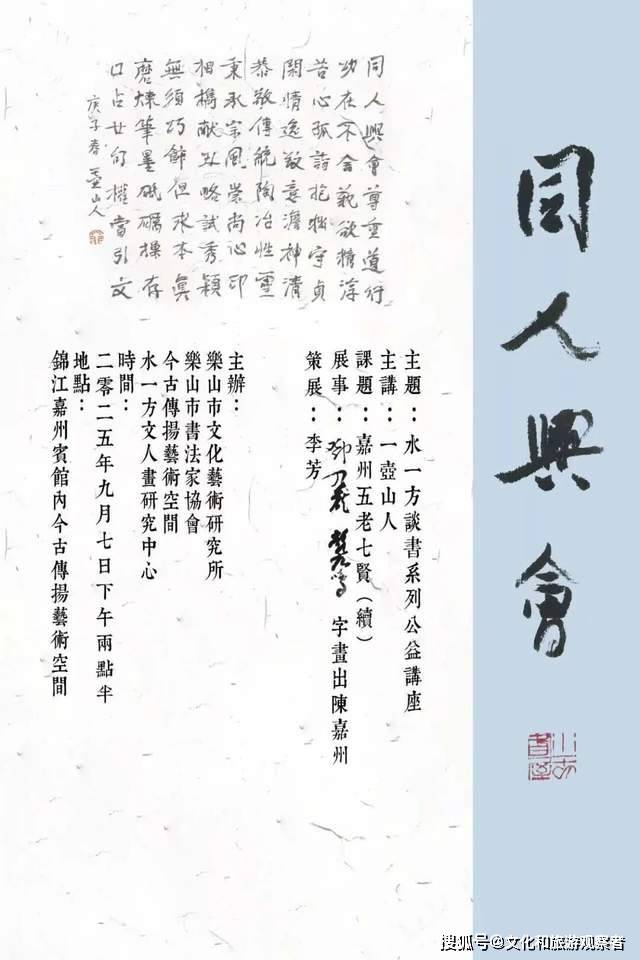 同人興會
同人興會尊重道行
功在不舍藐欲
苦心孤詣抱樸守貞
閑情逸致意澹神清
恭敬傳統陶冶性靈
秉承宗風崇尚心印
相機献丑略試秀穎
無須巧飾但求本真
磨煉筆墨砥礪操存
口占廿句權當引文
庚子春壺山人
主題：水一方談書系列公益講座
主講：一壺山人
課題：嘉州五老七賢（續）
展事：字畫出陳嘉州
策展：李芳
主辦：
樂山市文化藝術研究所
樂山市書法家協會
今古傳揚藝術空間
水一方文人畫研究中心
時間：
二零二五年九月七日下午兩點半
地點：
錦江嘉州賓館內今古傳揚藝術空間
搜狐号@文化和旅游观察者